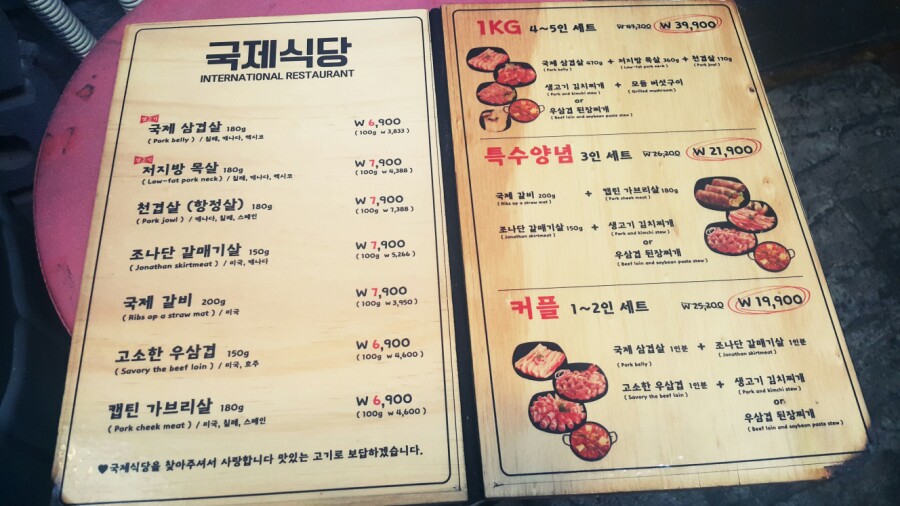 국제식당
INTERNATIONAL RESTAURANT
국제 삼겹살 180g
₩ 6,900
( Pork belly ) / 칠레, 캐나다, 멕시코
(100g ₩ 3,833)
저지방 목살 180g
₩ 7,900
( Low-fat pork neck) / 칠레, 캐나다, 멕시코
(100g ₩ 4,388)
천겹살 (항정살) 180g
₩ 7,900
( Pork jowl ) / 캐나다, 칠레, 스페인
(100g ₩ 7,388)
조나단 갈매기살 150g
₩ 7,900
( Jonathan skirtmeat ) / 미국, 캐나다
(100g ₩ 5,266)
국제 갈비 200g
₩ 7,900
( Ribs op a straw mat ) / 미국
(100g ₩ 3,950)
고소한 우삼겹 150g
₩ 6,900
( Savory the beef loin ) / 미국, 호주
(100g ₩ 4,600)
캡틴 가브리살 180g
₩ 6,900
( Pork cheek meat ) / 미국, 칠레, 스페인
(100g ₩ 4,600)
♥국제식당을 찾아주셔서 사랑합니다 맛있는 고기로 보답하겠습니다.
1KG 4~5인 세트 ₩ 39,900
국제 삼겹살 470g + 저지방 목살 360g + 천겹살 170g
( Pork belly ) ( Low-fat pork neck ) ( Pork jowl )
생고기 김치찌개 + 모듬 버섯구이
( Pork and kimchi stew ) ( Grilled mushroom )
or
우삼겹 된장찌개
( Beef loin and soybean paste stew )
특수양념 3인 세트 ₩ 26,200 ₩ 21,900
국제 갈비 200g + 캡틴 가브리살 180g
( Ribs op a straw mat ) ( Pork cheek meat )
조나단 갈매기살 150g + 생고기 김치찌개
( Jonathan skirtmeat ) ( Pork and kimchi stew )
or
우삼겹 된장찌개
( Beef loin and soybean paste stew )
커플 1~2인 세트 ₩ 25,200 ₩ 19,900
국제 삼겹살 1인분 + 조나단 갈매기살 1인분
( Pork belly ) ( Jonathan skirtmeat )
고소한 우삼겹 1인분 + 생고기 김치찌개
( Savory the beef loin ) ( Pork and kimchi stew )
or
우삼겹 된장찌개
( Beef loin and soybean paste stew )